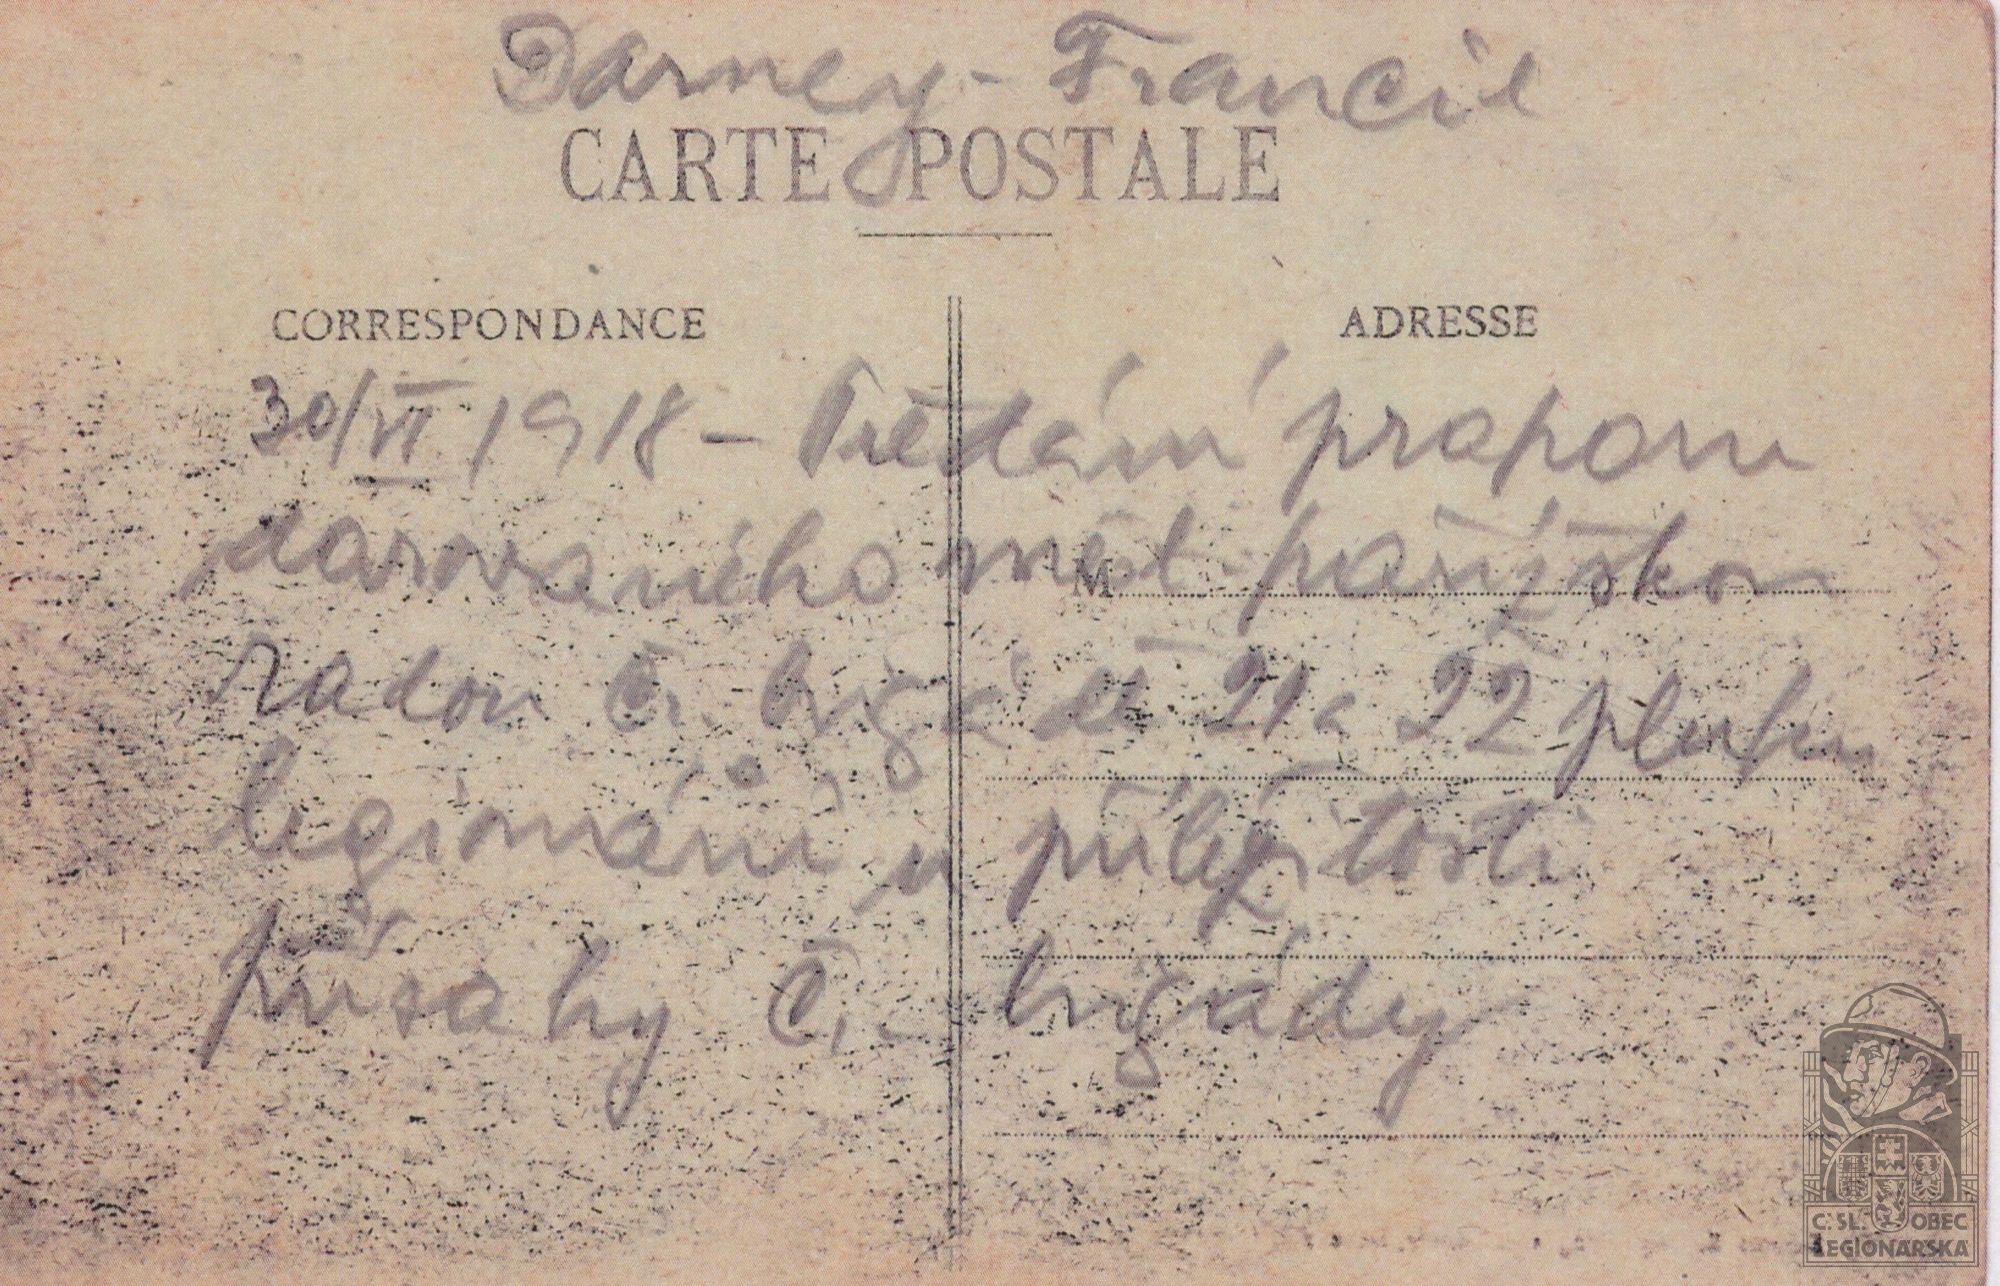 Darney - Francie
CARTE POSTALE
CORRESPONDANCE
ADRESSE
30/VI 1918 - Předání praporu
darovaného měst. pařížskou
M
radou Č. brigádě 21 a 22 pluku
legionářů u příležitosti
přísahy Č. brigády
C. SL. OBEC
LEGIONÁŘSKÁ